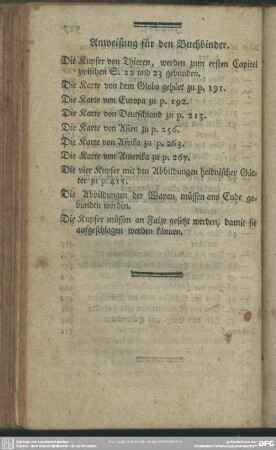 Anweisung für den Buchbinder.
Die Kupfer von Thieren, werden zum ersten Capitel
zwischen S. 22 und 23 gebunden.
Die Karte von dem Globo gehört zu p. 191.
Die Karte von Europa zu p. 192.
Die Karte von Deutschland zu p. 213.
Die Karte von Asien zu p. 256.
Die Karte von Afrika zu p. 263.
Die Karte von Amerika zu p. 267.
Die vier Kupfer mit den Abbildungen heidnischer Göt-
ter zu p. 415.
Die Abbildungen der Waren, müssen ans Ende ge-
bunden werden.
Die Kupfer müssen an Falze gesetzt werden, damit sie
aufgeschlagen werden können.
DFG